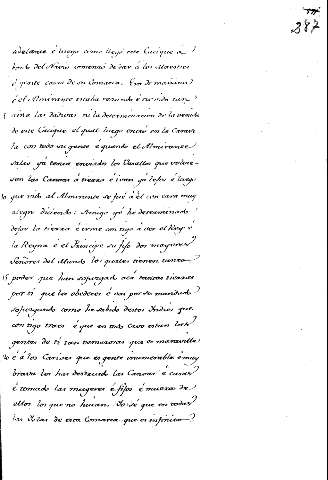 287
adelante é luego como llegó este Cacique a
bordo del Navio comenzó de dar á los Maestres
é gente cosas de su Comarca. Era de mañana
é el Almirante estaba rezando é no vido tan
aina las dadivas ni la determinacion de la venida
de este Cacique el qual luego entró en la Carava
la con toda su gente é quando el Almirante
salió ya tenia enviados los Canoas que volvie-
sen las Canoas á tierra é iban ya lejos é luego
10 que vido al Almirante se fué á él con cara muy
alegre diciendo: Amigo yo he determinado
dejar la tierra é irme contigo á ver el Rey é
la Reyna é el Principe su fijo dos mayores
Señores del Mundo los quales tienen tanto
15 poder que han sojuzgado acá tantas tierras
por ti que los obedeces é vas por su mandado
sojuzgando como he sabido destos Indios que
contigo traes é que en todo cabo estan las
gentes de ti tan temerosas que es maravilla
20 é á los Caribes que es gente innumerable é muy
brava les has destruido las Canoas é casas
é tomado las mugeres é fijos é muerto de
ellos los que no huian. Yo sé que en todas
las Islas de esta Comarca que es infinito